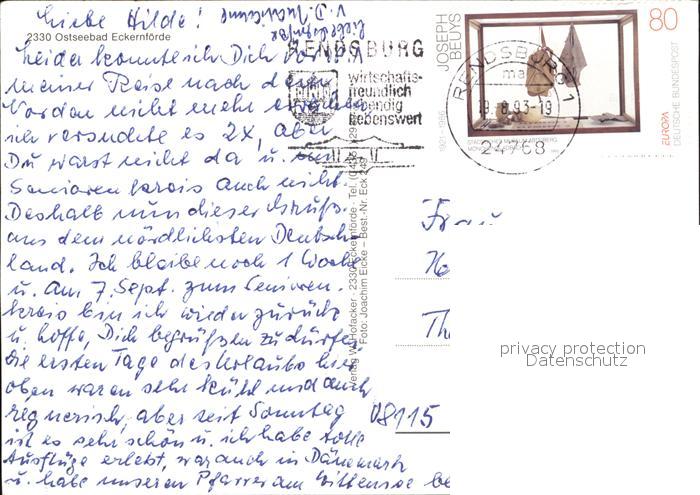 Liebe Hilde!
2330 Ostseebad Eckernförde
Leider konnte ich Dich vor
meiner Reise nach dem
Norden nicht mehr erreichen
ich versuchte es 2x, aber
Du warst nicht da u. im
Seniorenkreis auch nicht.
Deshalb nun dieser Gruß
aus dem nördlichsten Deutsch-
land. Ich bleibe noch 1 Woche
u. am 7. Sept. zum Senioren-
kreis bin ich wieder zurück
u. hoffe, Dich begrüßen zu dürfen.
Die ersten Tage des Urlaubs hier
oben waren sehr kühl und auch
regnerisch, aber seit Sonntag
ist es sehr schön u. ich habe tolle
Ausflüge erlebt, war auch in Dänemark
u. habe unseren Pfarrer am Wittensee be
RENDSBURG
wirtschafts-
freundlich
lebendig
liebenswert
Verlag W. Hofacker · 2330 Eckernförde · Tel. (04351)
Foto: Joachim Eicke – Best.-Nr. Eck 249
JOSEPH
BEUYS
1921 - 1986
80
EUROPA
DEUTSCHE BUNDESPOST
RENDSBURG 1
ma
19.8.93-19
24768
Frau
Th
08115
privacy protection
Datenschutz